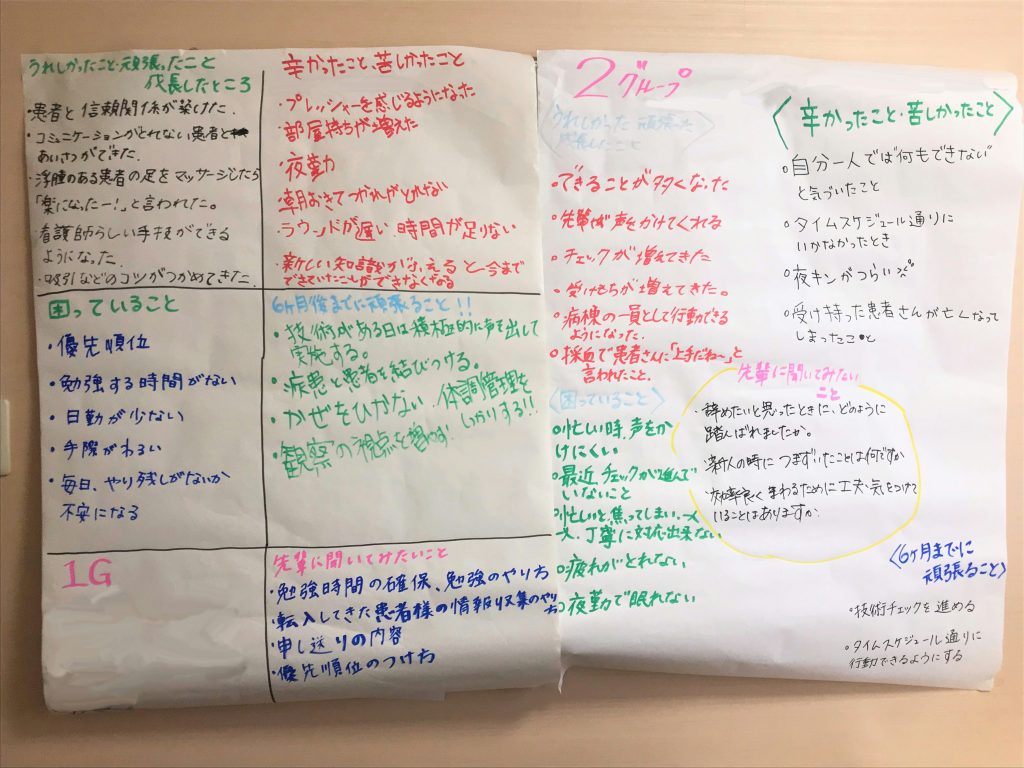 うれしかったこと・頑張ったこと
成長したところ
・患者と信頼関係が築けた。
・コミュニケーションがとれない患者と
あいさつができた。
・浮腫のある患者の足をマッサージしたら
「楽になったー！」と言われた。
・看護師らしい手技ができる
ようになった。
・吸引などのコツがつかめてきた。
辛かったこと、苦しかったこと
・プレッシャーを感じるようになった
・部屋持ちが増えた
・夜勤
・朝おきてつかれがとれない
・ラウンドが遅い、時間が足りない
・新しい知識がふえると今まで
できていたことができなくなる
困っていること
・優先順位
・勉強する時間がない
・日勤が少ない
・手際がわるい
・毎日、やり残しがないか
不安になる
6ヶ月後までに頑張ること！！
・技術がある日は積極的に声を出して
実施する。
・疾患と患者を結びつける。
・かぜをひかない 体調管理を
しっかりする!!
・観察の視点を
1G
先輩に聞いてみたいこと
・勉強時間の確保、勉強のやり方
・転入してきた患者様の情報収集のやり方
・申し送りの内容
・優先順位のつけ方
2グループ
〈うれしかった 頑張った
成長したこと〉
○できることが多くなった
○先輩が声をかけてくれる
○チェックが増えてきた
○受けもちが増えてきた。
○病棟の一員として行動できる
ようになった。
○採血で患者さんに「上手だね〜」と
言われたこと。
〈困っていること〉
○忙しい時、声をか
けにくい
○最近、チェックが進んで
いないこと
○忙しいと、焦ってしまい、一人
一人、丁寧に対応出来ない
○疲れがとれない
○夜勤で眠れない
〈辛かったこと・苦しかったこと〉
○自分一人では何もできない
と気づいたこと
○タイムスケジュール通りに
いかなかったとき
○夜キンがつらい
○受け持った患者さんが亡くなって
しまったこと
先輩に聞いてみたい
こと
・辞めたいと思ったときに、どのように
踏んばれましたか。
・新人の時につまずいたことは何ですか
・効率良くまわるために工夫・気をつけて
いることはありますか
〈6ヶ月までに
頑張ること〉
○技術チェックを進める
○タイムスケジュール通りに
行動できるようにする